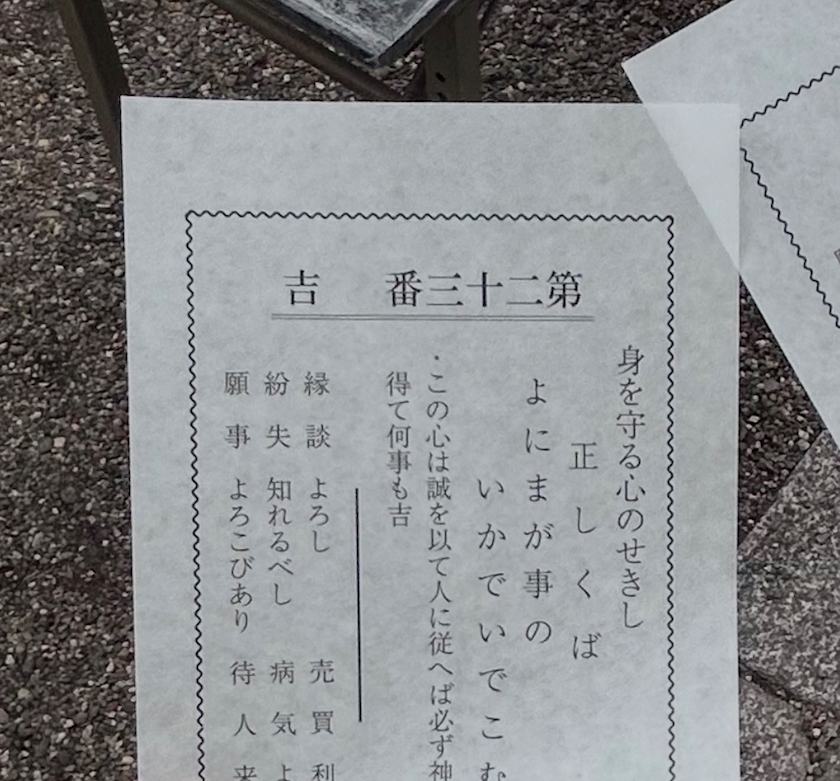 第二十三番　吉
身を守る心のせきし
正しくば
よにまが事の
いかでいでこむ
・この心は誠を以て人に従へば必ず神
得て何事も吉
縁談　よろし　売買　利
紛失　知れるべし　病気　よ
願事　よろこびあり　待人　来